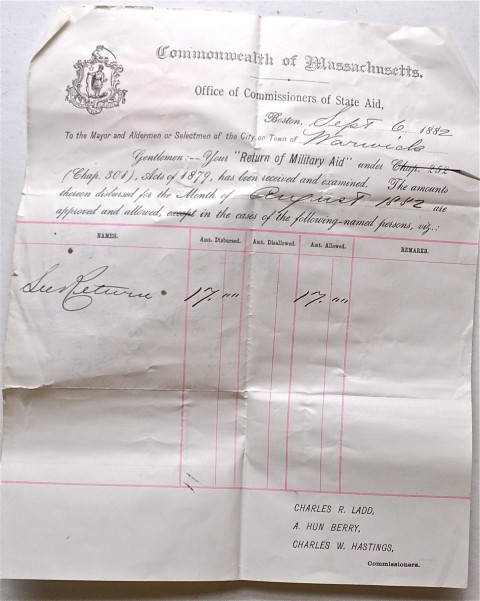 Commonwealth of Massachusetts.
Office of Commissioners of State Aid,
Boston, Sept 6, 1882
To the Mayor and Aldermen or Selectmen of the City or Town of Warwick
Gentlemen:—Your "Return of Military Aid" under Chap. 252
(Chap. 301), Acts of 1879, has been received and examined. The amounts
thereon disbursed for the Month of August 1882 are
approved and allowed, except in the cases of the following-named persons, viz.:
NAMES. Amt. Disbursed. Amt. Disallowed. Amt. Allowed. REMARKS.
See Return 17. "" 17. ""
CHARLES R. LADD,
A. HUN BERRY,
CHARLES W. HASTINGS,
Commissioners.